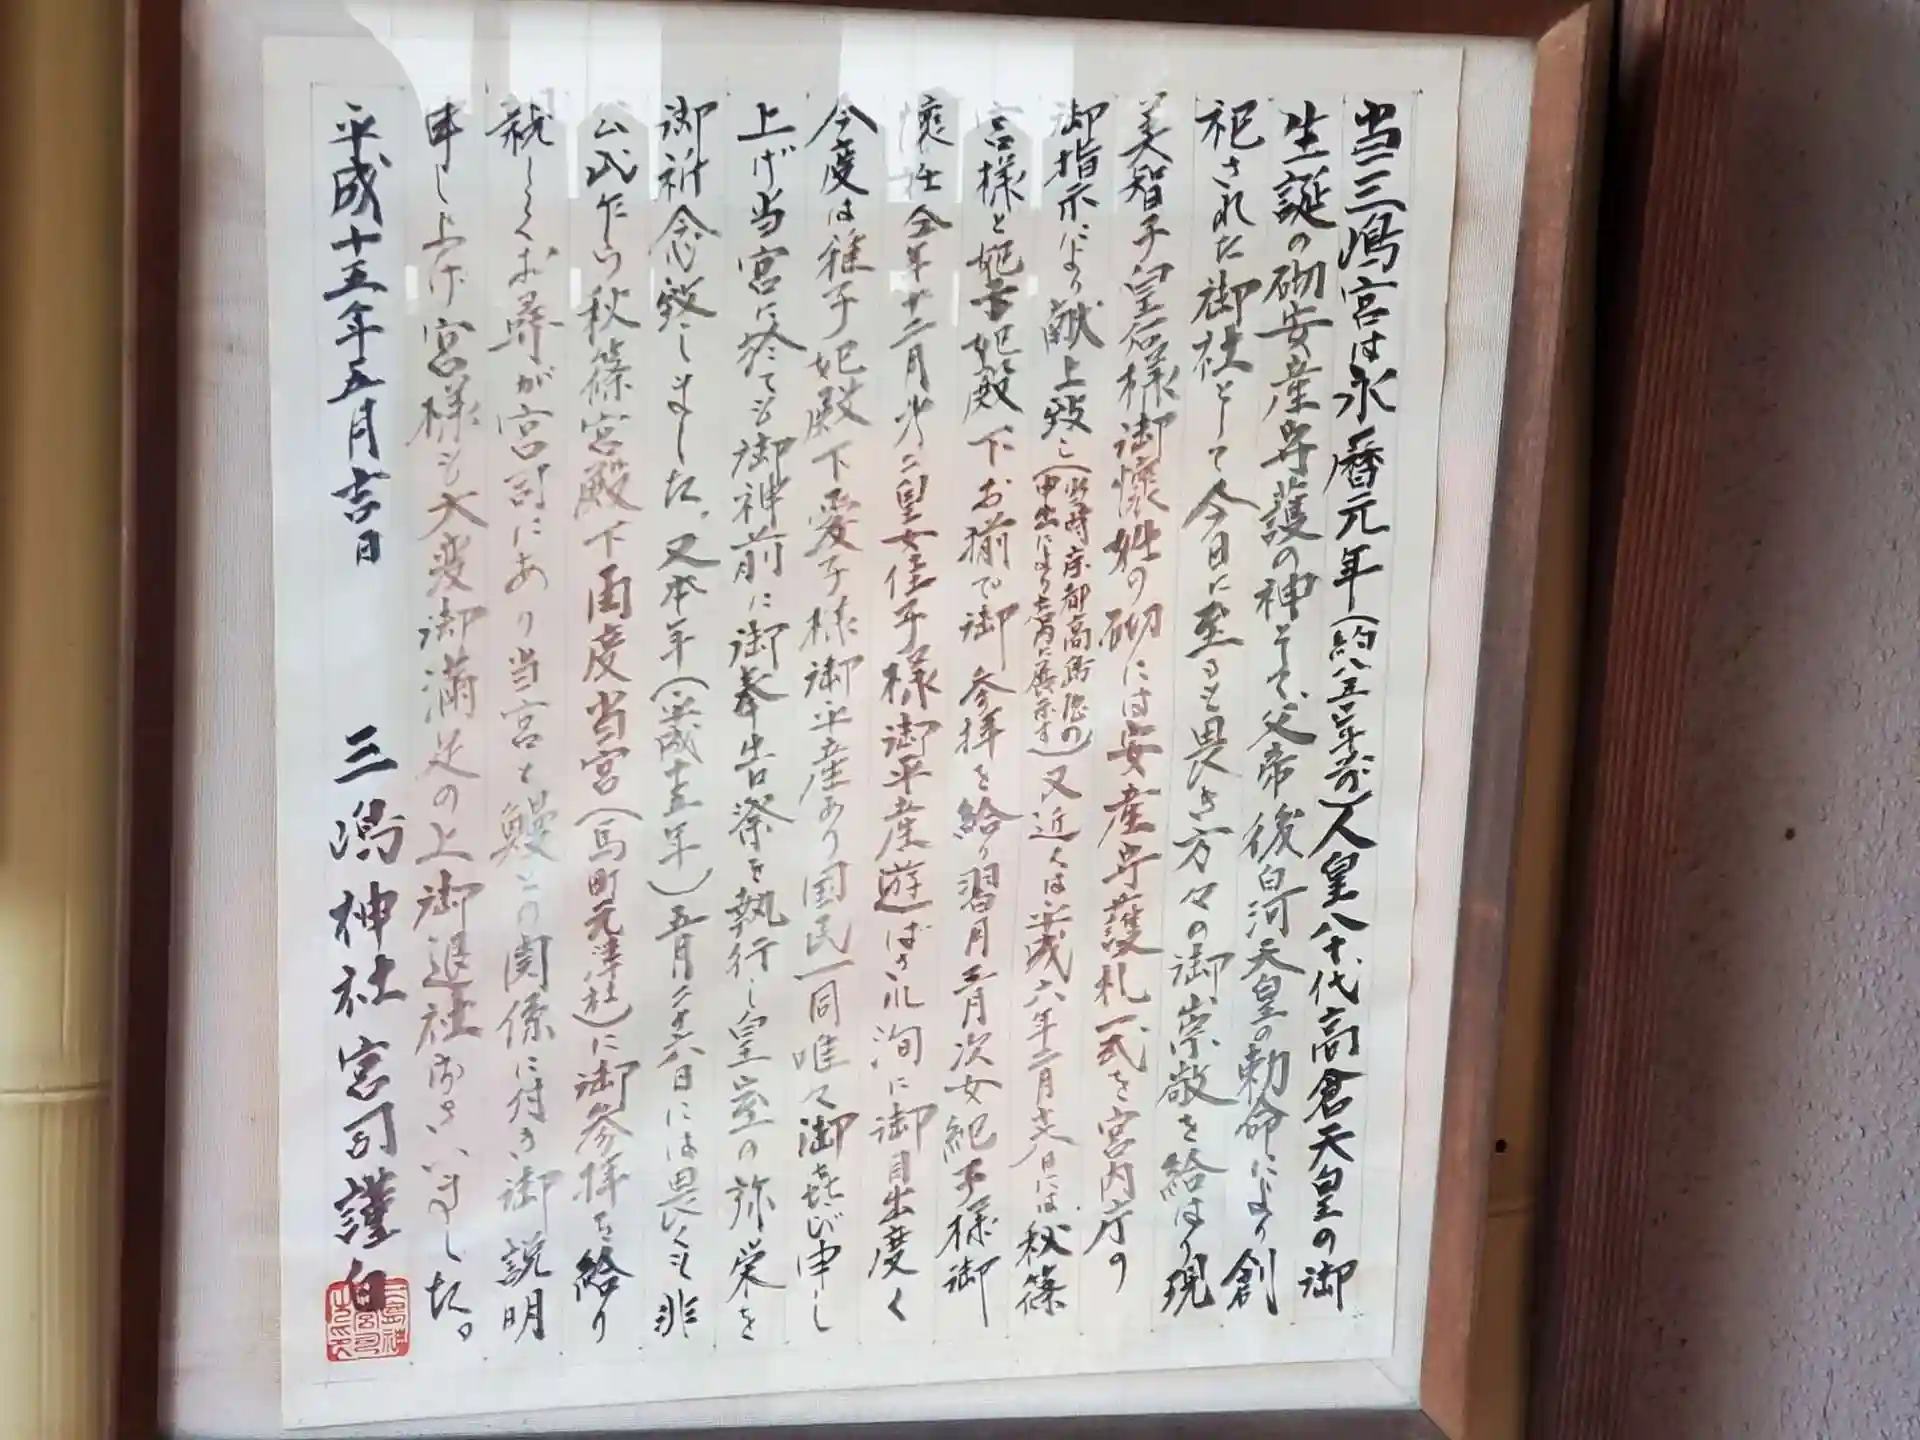 当三嶋宮は永暦元年(約八五〇年前)人皇八十代高倉天皇の御
生誕の砌安産守護の神そて、父帝後白河天皇の勅命により創
祀された御社として今日に至るも畏き方々の御崇敬を給はり現
美智子皇后様御懐妊の砌には安産守護札一式を宮内庁の
御指示により献上致し(当時京都高島屋の申出により上賀に展示す)又近くは平成六年二月十六日には秋篠
宮様と妃子妃殿下お揃で御参拝を給り習月五月次女紀子様御
懐妊全年廿二月廿九二皇女佳子様御平産遊ばされ洵に御目出度く
今度は雅子妃殿下愛子様御平産あり国民一同唯々御喜び申し
上げ当宮に於ても御神前に御奉告祭を執行し皇室の弥栄を
御祈念致しました。又本年(平成十五年)五月二十六日には畏くも非
公式乍ら秋篠宮殿下再度当宮(馬町元津社)に御参拝を給り
親しくお尋が宮司にあり当宮と鰻との関係に付き御説明
申し上げ宮様も大変御満足の上御退社なさいました。
平成十五年五月吉日 三嶋神社宮司謹白